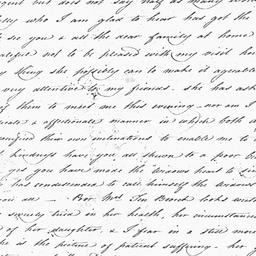 but does not say half as many
who I am glad to hear has got the
to see you & all the dear family at home
not to be pleased with my visit
thing she possibly can to make it agreeable
very attention to my friends. she has ask
of them to meet me this evening. nor am I
& affectionate manner in which both
their own inclinations to enable me to
kindness have you all shewn to a poor
yes you have made the widows heart to
has condescended to call himself the widows
you all — Poor Mrs Ten Broeck looks
tried in her health, her circumstances
of her daughter, & I fear in a still more
she is the picture of patient suffering. her